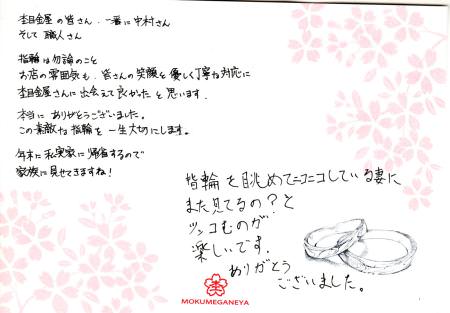 杢目金屋の皆さん、一番に中村さん
そして職人さん
指輪は勿論のこと
お店の雰囲気も、皆さんの笑顔と優しく丁寧な対応に
杢目金屋さんに出会えて良かったと思います。
本当にありがとうございました。
この素敵な指輪を一生大切にします。
年末に私実家に帰省するので
家族に見せてきますね!
指輪を眺めてニコニコしている妻に
また見てるの?と
ツッコむのが
楽しいです。
ありがとう
ございました。
MOKUMEGANEYA